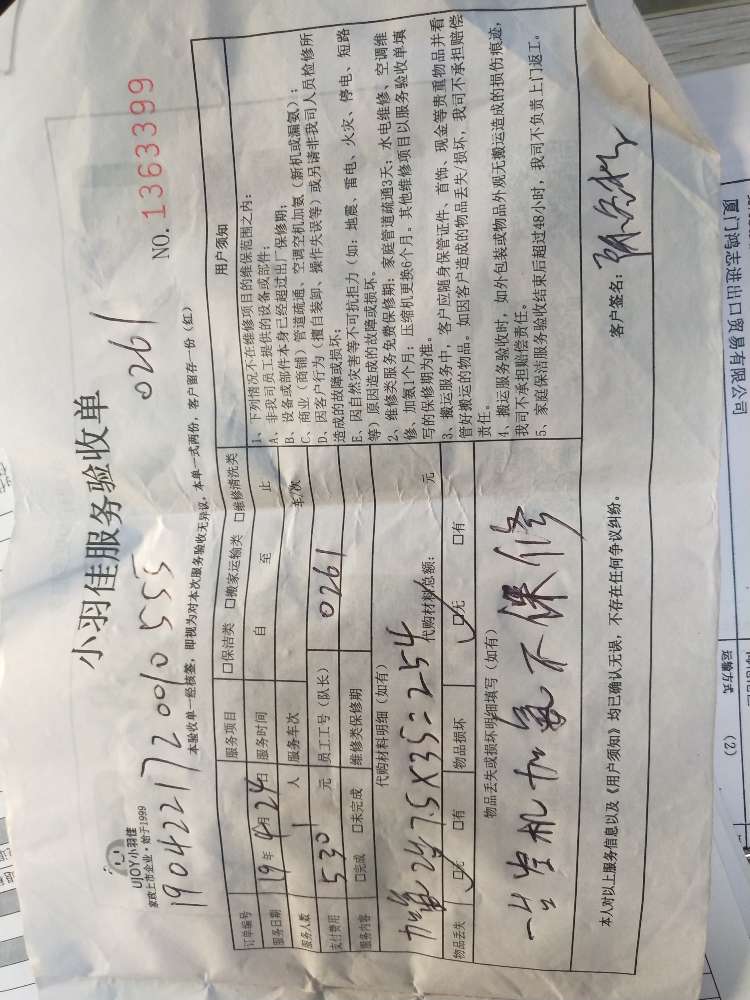 UJOY小羽佳
家政上市企业·始于1999
小羽佳服务验收单
NO. 1363399
0261
本验收单一经核签，即视为对本次服务验收无异议。本单一式两份，客户留存一份（红）
订单编号
服务项目 □保洁类 □搬家运输类 □维修清洗类
服务日期 19年4月24日 服务时间 自 至 止
服务人数 人 服务车次 车/次
支付费用 元 员工工号（队长） 0261
服务内容 □完成 □未完成 维修类保修期
代购材料明细（如有）
代购材料总额： 元
物品丢失 □无 □有 物品损坏 □无 □有
物品丢失或损坏明细填写（如有）
不保修
本人对以上服务信息以及《用户须知》均已确认无误，不存在任何争议纠纷。
用户须知
1、下列情况不在维修项目的维保范围之内：
A、非我司员工提供的设备或部件；
B、设备或部件本身已经超过出厂保修期；
C、商业（商铺）管道疏通、空调空机加氨（新机或漏氨）；
D、因客户行为（擅自装卸、操作失误等）或另请非我司人员检修所
造成的故障或损坏；
E、因自然灾害等不可抗拒力（如：地震、雷电、火灾、停电、短路
等）原因造成的故障或损坏。
2、维修类服务免费保修期：家庭管道疏通3天；水电维修、空调维
修、加氨1个月；压缩机更换6个月。其他维修项目以服务验收单填
写的保修期为准。
3、搬运服务中，客户应随身保管证件、首饰、现金等贵重物品并看
管好搬运的物品。如因客户造成的物品丢失/损坏，我司不承担赔偿
责任。
4、搬运服务验收时，如外包装或物品外观无搬运造成的损伤痕迹，
我司不承担赔偿责任。
5、家庭保洁服务验收结束后超过48小时，我司不负责上门返工。
客户签名：
厦门鸿志进出口贸易有限公司
运输方式
(2)